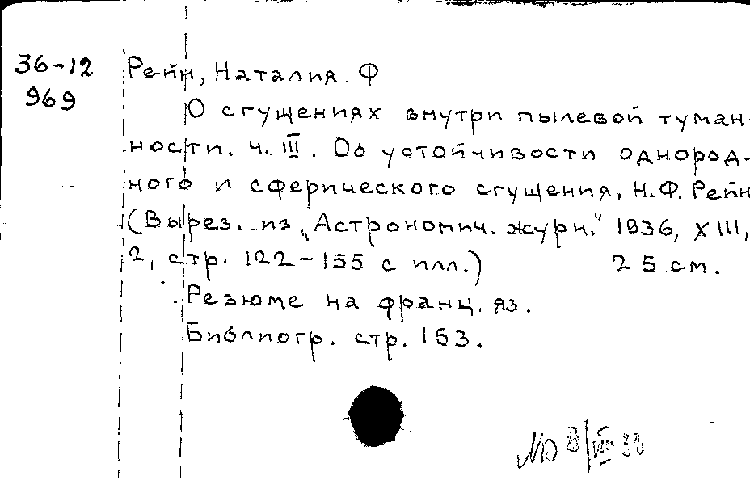 36-12
969
Рейн, Наталия. Ф
О сгущениях внутри пылевой туман-
ности. ч. III. Об устойчивости однород-
ного и сферического сгущения, Н.Ф. Рейн
(Вырез. из „Астрономич. журн." 1936, XIII,
2, стр. 122-155 с илл.) 25 см.
Резюме на франц. яз.
Библиогр. стр. 153.